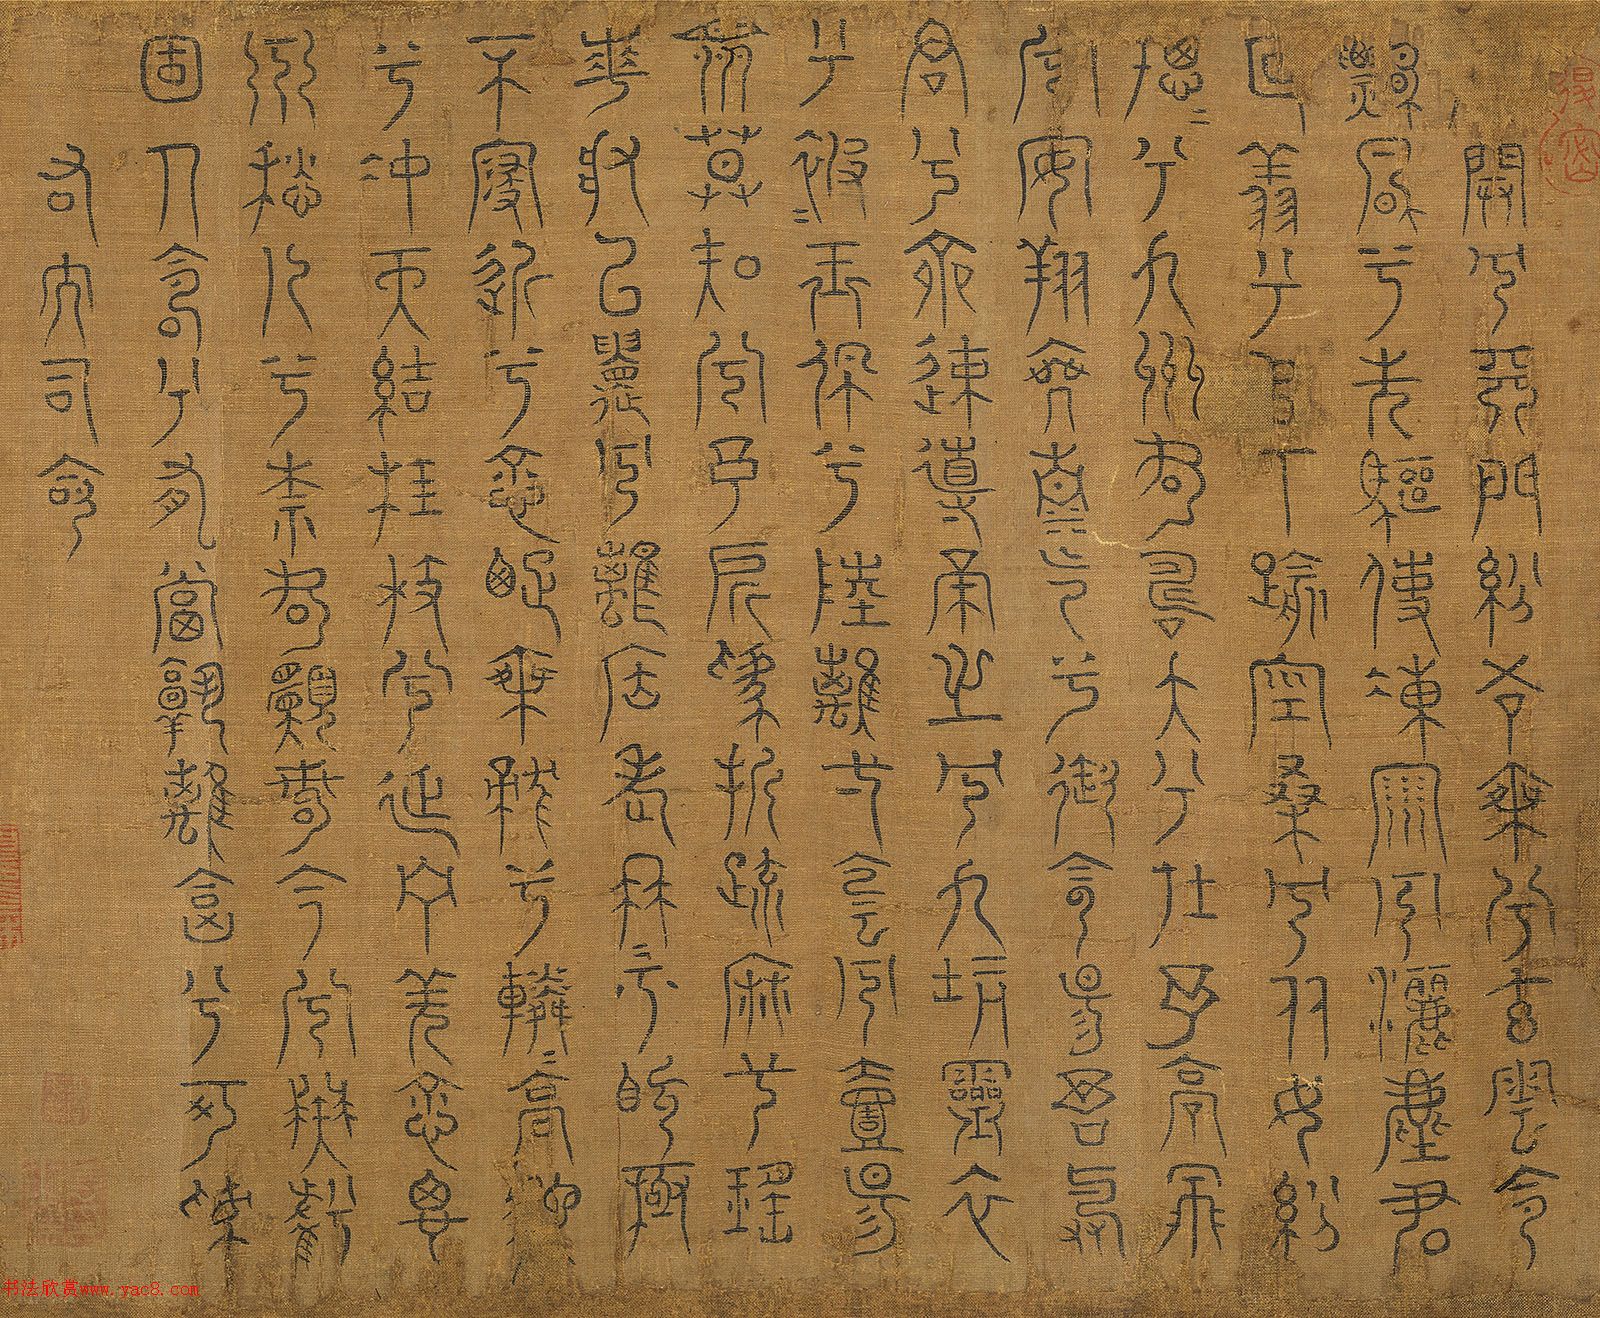 開兮天門紛吾乘兮玄雲令
飄風兮先驅使凍雨兮灑塵君
迴翔兮以下踰空桑兮从女紛
總〻兮九州何壽夭兮在予高飛
兮安翔乘清氣兮御陰陽吾與
君兮齊速導帝之兮九坑靈衣
兮被〻玉佩兮陸離壹陰兮壹陽
衆莫知兮余所為折疏麻兮瑤
華將以遺兮離居老冉〻兮既極
不寖近兮愈疏乘龍兮轔〻高馳
兮沖天結桂枝兮延佇羌愈思
兮愁人兮柰何願若今兮無虧
固人命兮有當孰離合兮可為
右大司命
书法欣赏www.yac8.com